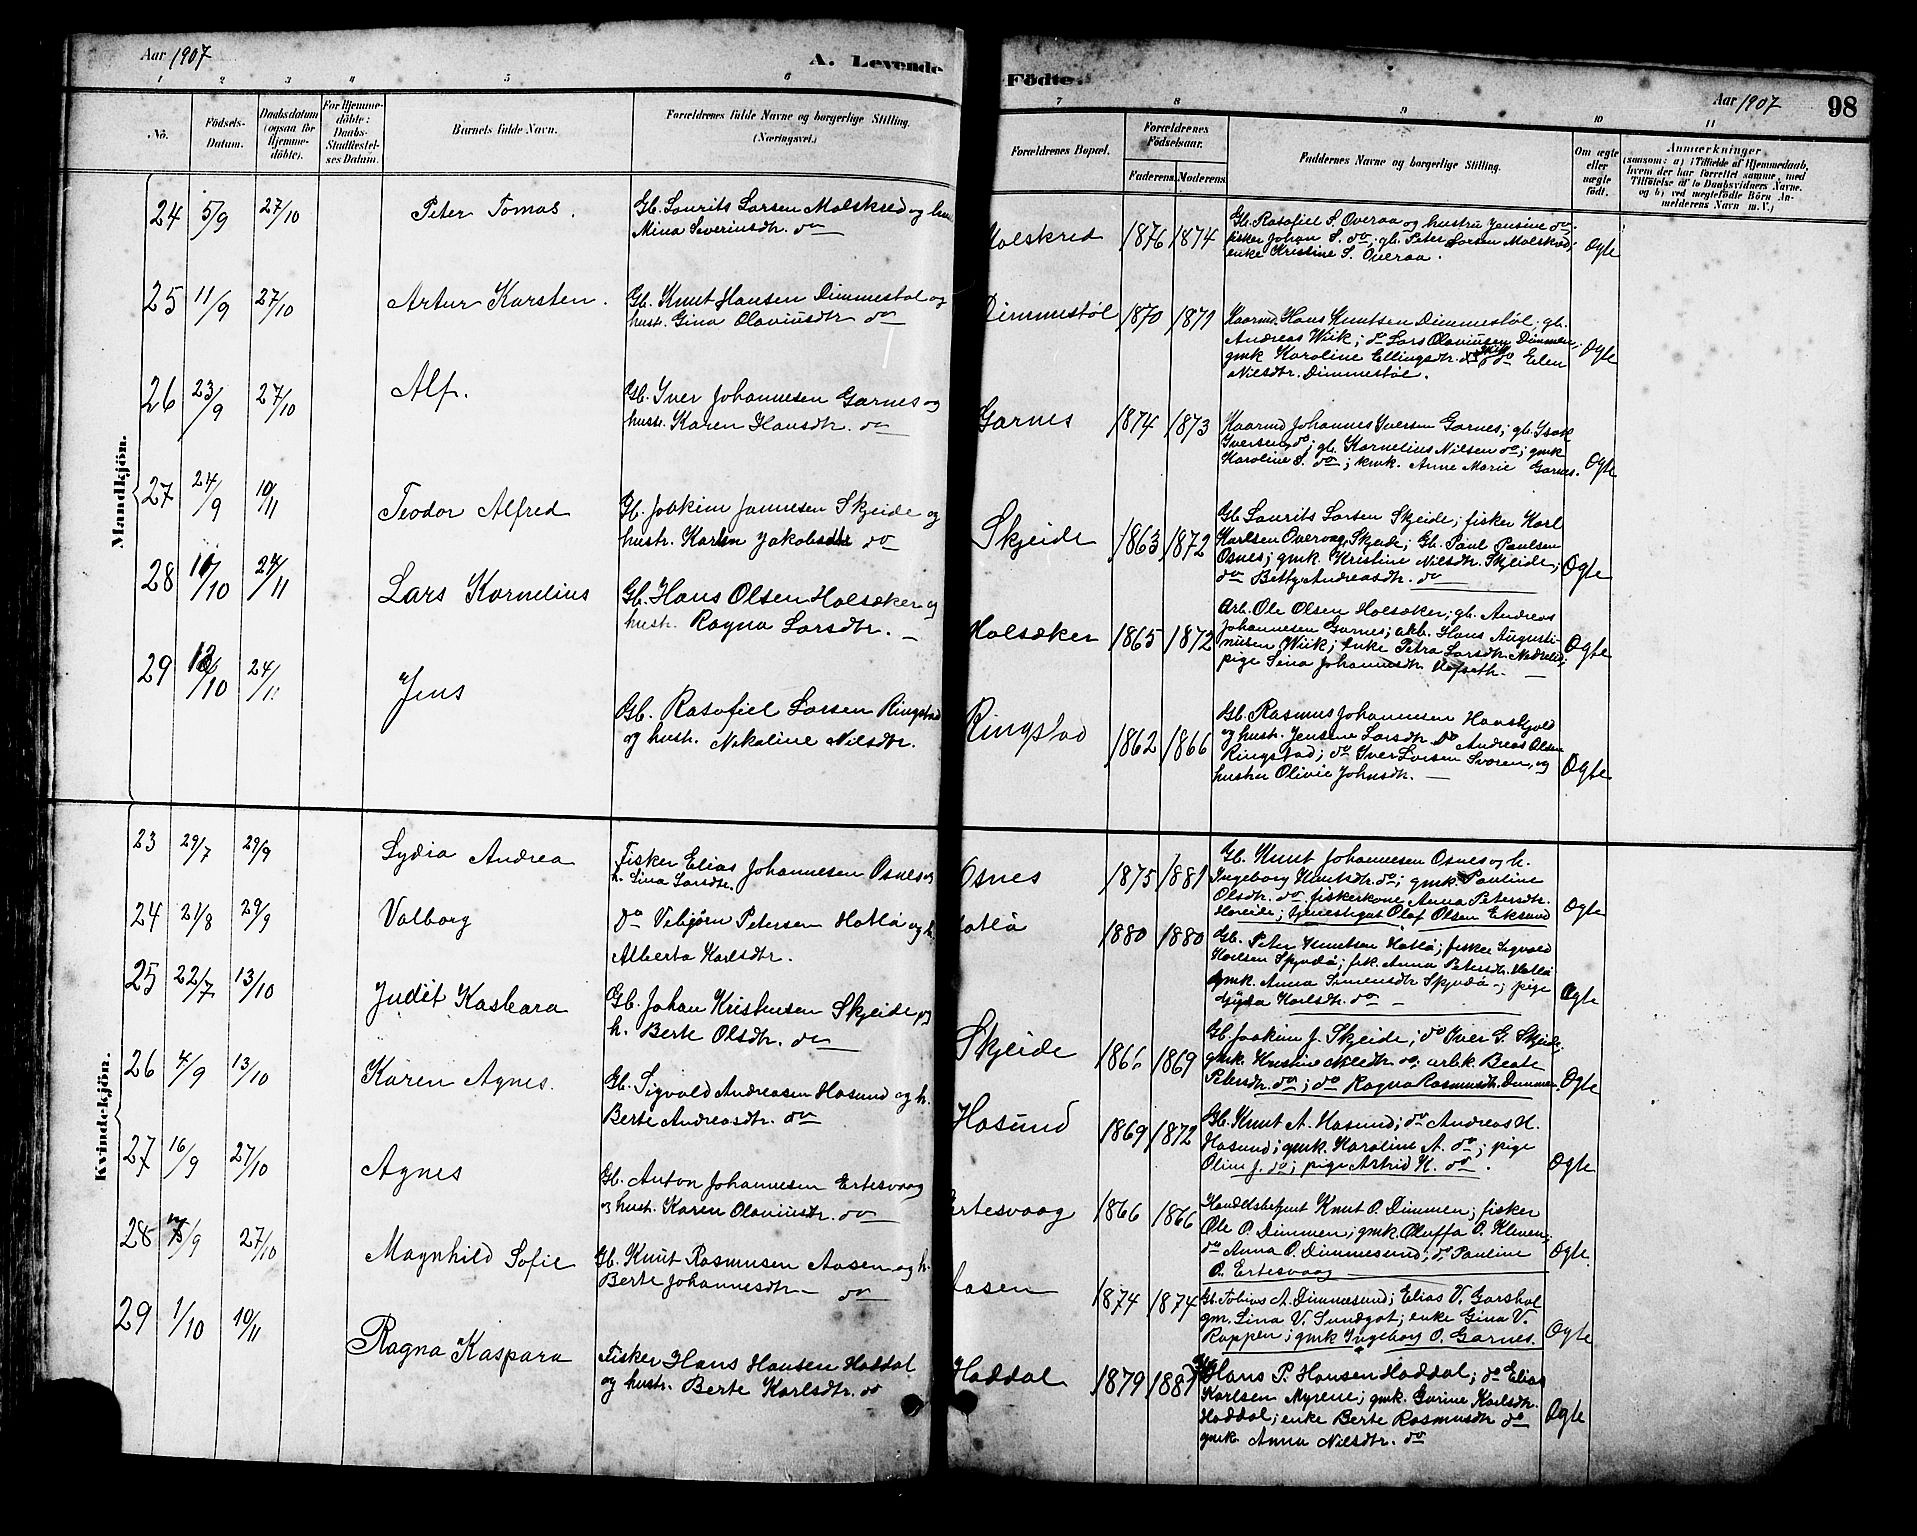 Aar 1907
A. Levende
Födte.
Aar 1907
98
1 2 3 4 5 6
7 8 9 10 11
No.
Födsels-Datum.
Daabsdatum (ogsaa for Hjemmedöbte).
For Hjemmedöbte: Daabs-Stadfæstelses Datum.
Barnets fulde Navn.
Forældrenes fulde Navne og borgerlige Stilling.
(Næringsvei.)
Forældrenes Bopæl.
Forældrenes Födselsaar.
Faderens. Moderens.
Faddernes Navne og borgerlige Stilling.
Om ægte eller uægte födt.
Anmærkninger
(saasom: a) i Tilfælde af Hjemmedaab, hvem der har forrettet samme, med Tilföielse af to Daabsvidners Navne. og b) ved uægtefödte Börn Anmelderens Navn m. V.)
Mandkjön.
24 5/9 27/10 Peter Tomas.
Gb. Laurits Larsen Molskred og hu
Mina Severinsdtr. do
Molskred 1876 1874
Gb. Rasofiel S. Overaa og hustru Jensine do.
fisker Johan S. do; gb. Peter Larsen Molskred;
enke Kristine S. Overaa.
Ægte
25 11/9 27/10 Artur Karsten.
Gb. Knut Hansen Dimmestøl og
hust. Gina Olaviusdtr. do
Dimmestøl 1870 1871
Kaarmd. Hans Knutsen Dimmestøl; gb.
Andreas Wiik; do Lars Olaviusen Dimmen;
gmk Karoline Ellingsdtr. Wiik do Elen
Nilsdtr. Dimmestøl.
Ægte
26 23/9 27/10 Alf.
Gb. Iver Johannesen Garnes og
hustr. Karen Hansdtr. do
Garnes 1874 1873
Kaarmd Johannes Iversen Garnes; gb. Isak
Iversen do; gb. Kornelius Nilsen do; gmk
Karoline S. do; kmk. Anne Marie Garnes.
Ægte
27 24/9 10/11 Teodor Alfred
Gb. Joakim Jonnesen Skjeide og
hustr. Karen Jakobsdtr do
Skjeide 1863 1872
Gb. Laurits Larsen Skjeide; fisker Karl
Karlsen Overaa, Skjeide; Gb. Paul Paulsen
Osnes; gmk. Kristine Nilsdtr. Skjeide;
do Betty Andreasdtr. do
Ægte
28 10/10 24/11 Lars Kornelius
Gb. Hans Olsen Holsæker og
hustr. Ragna Larsdtr.
Holsæker 1865 1872
Arb. Ole Olsen Holsæker; gb. Andreas
Johannesen Garnes; arb. Hans Augusti-
nusen Wiik; enke Petra Larsdtr.
pige Sina Johannesdtr.
Ægte
29 10 24/11 Jens
Gb. Rasofiel Larsen Ringstad
og hustr. Nikoline Nilsdtr.
Ringstad 1862 1866
Gb. Rasmus Johannesen
og hustr. Jensine Larsdtr do Andreas Olsen
Ringstad; do Iver Larsen og
hustru Olivie Johnsdtr.
Ægte
Kvindekjön.
23 29/7 29/9 Lydia Andrea
Fisker Elias Johannesen Osnes og
h. Sina Larsdtr.
Osnes 1875 1881
Gb. Knut Johannesen Osnes og h.
Ingeborg Knutsdtr. do; gmk. Pauline
Olsdtr. do fiskerkone Anna Petersdtr.
Hareide; tjenestegut Olaf Olsen Eksund
Ægte
24 21/8 29/9 Valborg
do Vebjørn Petersen Hatlø og h.
Alberta Karlsdtr.
Hatlø 1880 1880
Gb. Peter Knutsen Hatlø; fisker Sigvald
Karlsen Spjudø; fik. Anna Petersdtr. Hatlø
gmk. Anna Simensdtr Spjudø; pige
Gyda Karlsdtr. do
Ægte
25 22/7 13/10 Judit Kasbara
Gb. Johan Kristensen Skjeide og
h. Berte Olsdtr. do
Skjeide 1866 1869
Gb. Joakim J. Skjeide; do Over G. Skjeide;
gmk. Kristine Nilsdtr. do; arbk. Beate
Petersdtr. do; do Ragna Rasmusdtr. Dimmen
Ægte
26 4/9 13/10 Karen Agnes.
Gb. Sigvald Andreasen Hasund og h.
Berte Andreasdtr. do
Hasund 1869 1872
Gb. Knut A. Hasund; do Andreas H.
Hasund; gmk. Karoline A. do; pige
Oline J. do; pige Astrid K. do.
Ægte
27 16/9 27/10 Agnes
Gb. Anton Johannesen Ertesvaag
og hustr. Karen Olaviusdtr. do
Ertesvaag 1866 1866
Handelsbetjent Knut O. Dimmen, fisker
Ole O. Dimmen; gmk Oluffa O. Kleven;
do Anna O. Dimmesund; do Pauline
O. Ertesvaag
Ægte.
28 /9 27/10 Magnhild Sofie
Gb. Knut Rasmusen Aasen og h.
Berte Johannesdtr. do
Aasen 1874 1874
Gb. Tobias A. Dimmesund; Elias V. Garshol
gm. Lina V. Sundgot; enke Gina V.
Rappen; gmk Ingeborg O. Garnes.
Ægte
29 1/10 10/11 Ragna Kaspara
Fisker Hans Hansen Haddal
og hustr. Berte Karlsdtr. do
Haddal 1879 1887
Hans P. Hansen Haddal; do Elias
Karlsen Myrene; gmk. Gurine Karlsdtr.
Haddal; enke Berte Rasmusdtr do
gmk. Anna Nilsdtr. do
Ægte